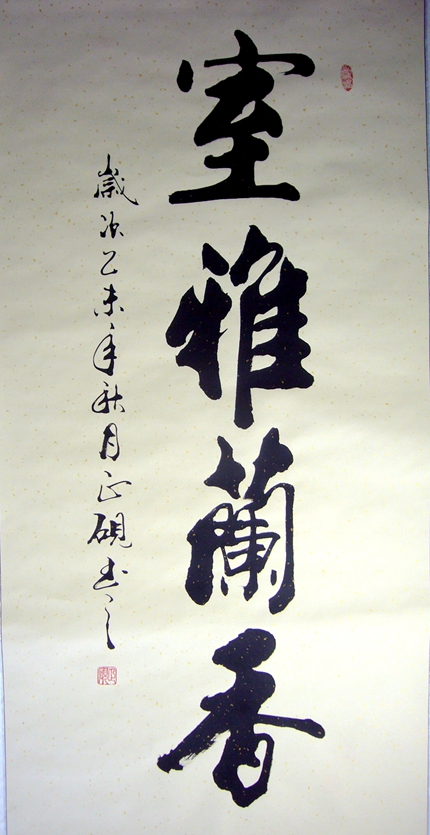 室雅蘭香
歲次乙未年秋月正硯书之